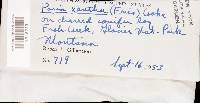 Poria xantha (Fries) Cooke
on charred conifer log
Fish Creek, Glacier Nat. Park
Montana
No. 719 Sept. 16, 1953